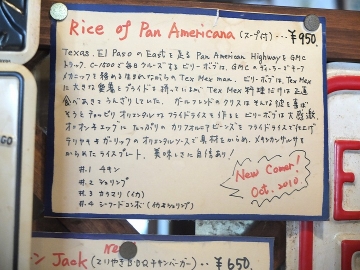 Rice of Pan Americana (スープ付)‥‥¥950.
Texas. El PasoのEastを走るPan American HighwayをGMC
トラック、C-1500で毎日クルーズするビリーボブは、GMCのディーラーでチーフ
メカニックを務める生まれながらのTex Mex man. ビリーボブは、Tex Mex
に大きな愛着とプライドを持っているが、Tex Mex料理だけは正直
食べあきてうんざりしていた。ガールフレンドのクリスはそんな彼を喜ば
そうとチョッピリオリエンタルなフライドライスを作るとビリーボブは大感激。
オニオンチップにたっぷりのカリフォルニアビーンズをフライドライスで仕上げ
テリヤキガーリックのオリエンタルソースで具材をからめ、メキシカンサルサも
からめられたライスプレート。美味しさに自信あり!
#.1 チキン
#.2 シュリンプ
#.3 カラマリ (イカ)
#.4 シーフードコンボ (イカ&シュリンプ)
New Comer!
Oct. 2010.
Jack (てりやきBBQチキンバーガー)‥¥650.